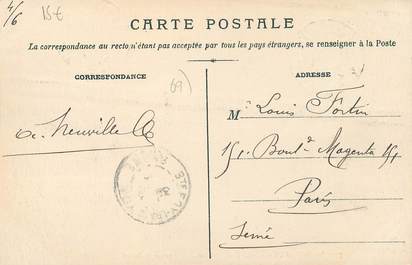 4/6
15€
CARTE POSTALE
La correspondance au recto n'étant pas acceptée par tous les pays étrangers, se renseigner à la Poste
CORRESPONDANCE
ADRESSE
69
M. Louis Fortin
151. Boulᵈ Magenta 151
Paris
Seine
de Neuville